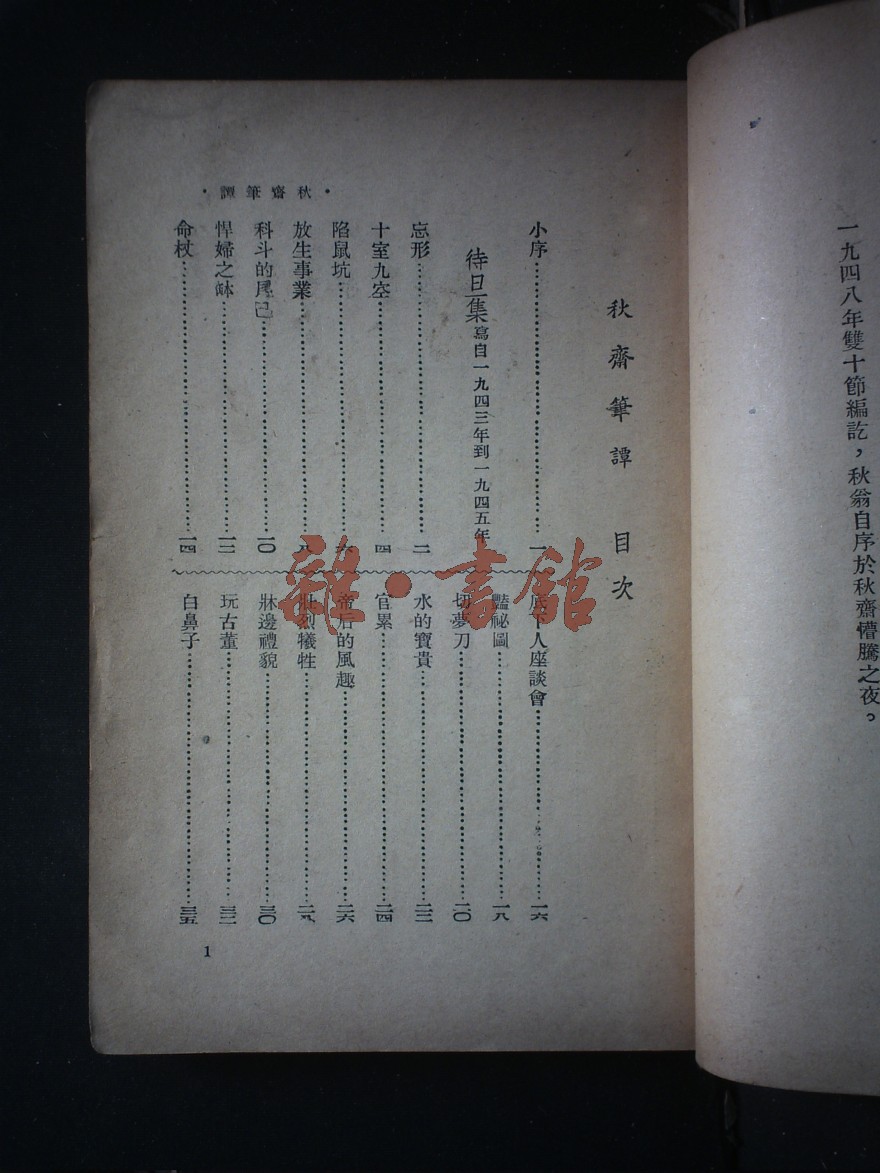 一九四八年雙十節編訖，秋翁自序於秋齋懵騰之夜。
秋齋筆譚 目次
小序……一
待旦集 寫自一九四三年到一九四五年
忘形……二
十室九空……四
陷鼠坑……六
放生事業……八
科斗的尾巴……一〇
悍婦之缽……一二
命杖……一四
底下人座談會……一六
豔祕圖……一八
切夢刀……二〇
水的寶貴……二二
官累……二四
帝后的風趣……二六
壯烈犧牲……二九
牀邊禮貌……三〇
玩古董……三二
白鼻子……三五
•秋齋筆譚•
1
雜·書館